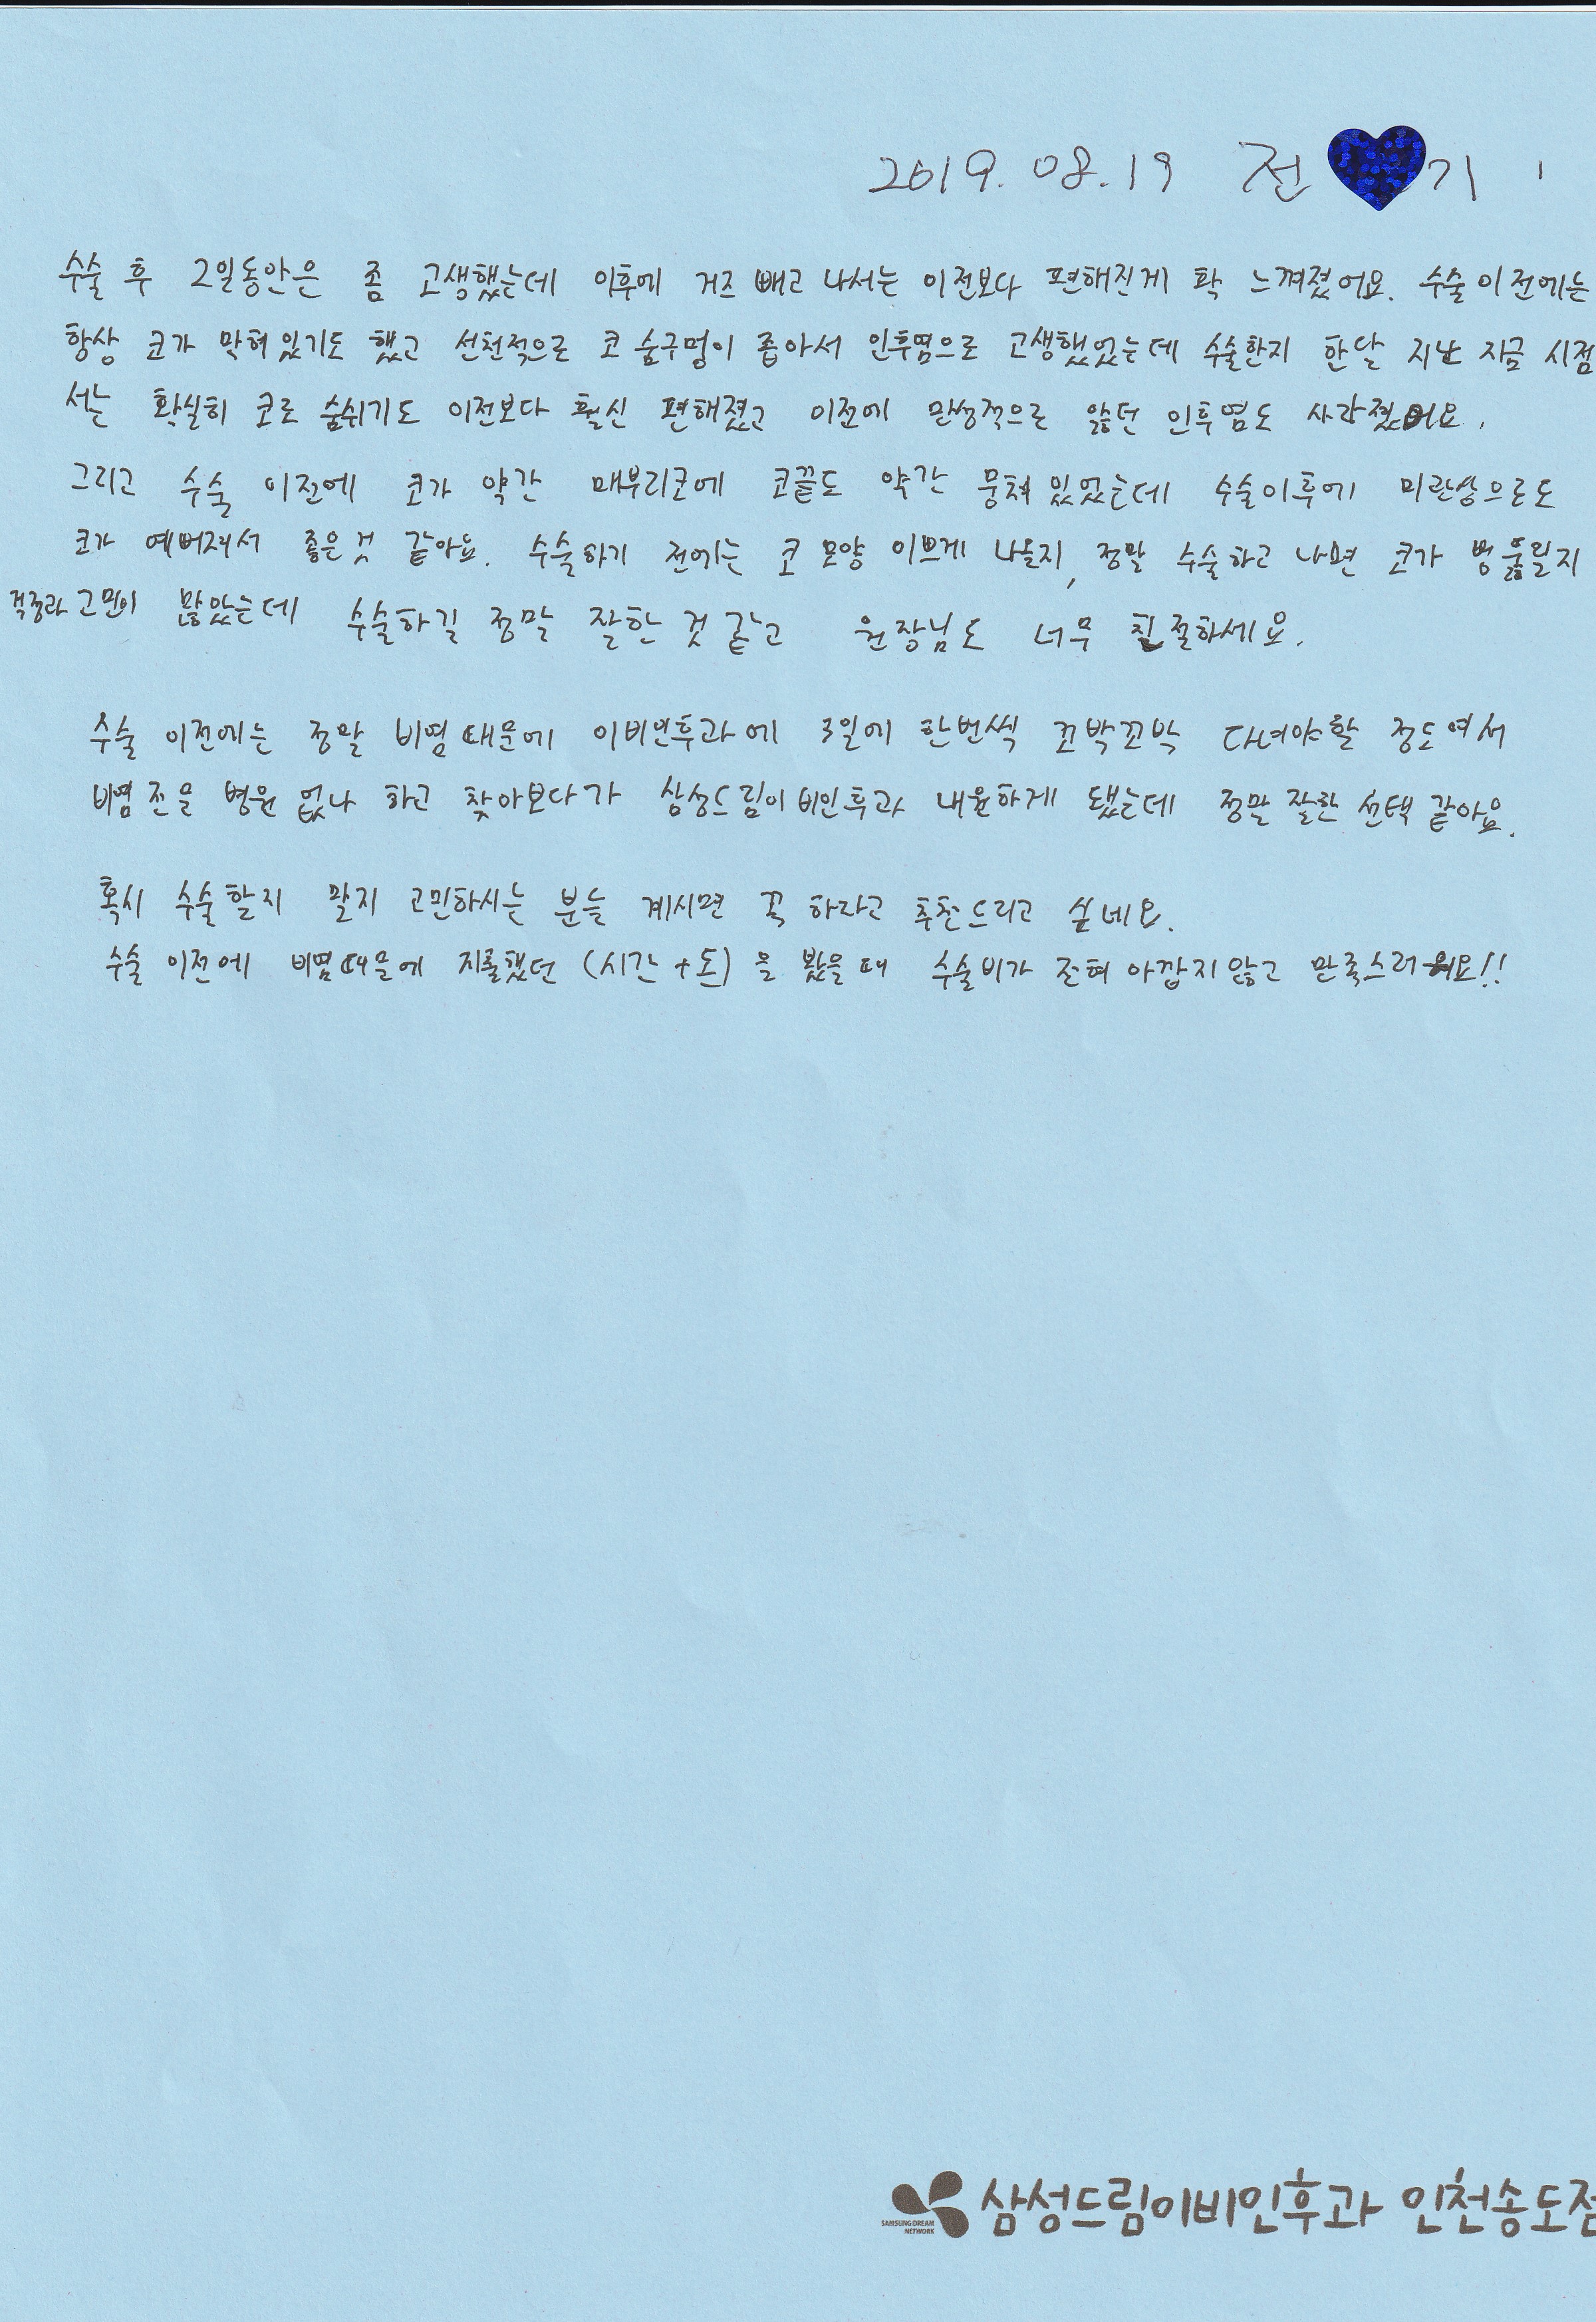 2019. 08. 19 전 기
수술 후 2일동안은 좀 고생했는데 이후에 거즈 빼고 나서는 이전보다 편해진게 확 느껴졌어요. 수술이전에는
항상 코가 막혀있기도 했고 선천적으로 코 숨구멍이 좁아서 인후염으로 고생했었는데 수술한지 한달 지난 지금 시점
서는 확실히 코로 숨쉬기도 이전보다 훨신 편해졌고 이전에 만성적으로 앓던 인후염도 사라졌어요.
그리고 수술 이전에 코가 약간 매부리코에 코끝도 약간 뭉쳐있었는데 수술이후에 미관상으로도
코가 예뻐져서 좋은것 같아요. 수술하기 전에는 코 모양 이쁘게 나올지, 정말 수술하고 나면 코가 뻥 뚫릴지
걱정과 고민이 많았는데 수술하길 정말 잘한 것 같고 원장님도 너무 친절하세요.
수술 이전에는 정말 비염때문에 이비인후과에 3일에 한번씩 꼬박꼬박 다녀야할 정도여서
비염 전문 병원 없나 하고 찾아보다가 삼성드림이비인후과 내원하게 됐는데 정말 잘한 선택 같아요.
혹시 수술할지 말지 고민하시는 분들 계시면 꼭 하라고 추천드리고 싶네요.
수술 이전에 비염때문에 지출했던 (시간+돈)을 봤을때 수술비가 전혀 아깝지않고 만족스러워요!!
SAMSUNG DREAM NETWORK
삼성드림이비인후과 인천송도점